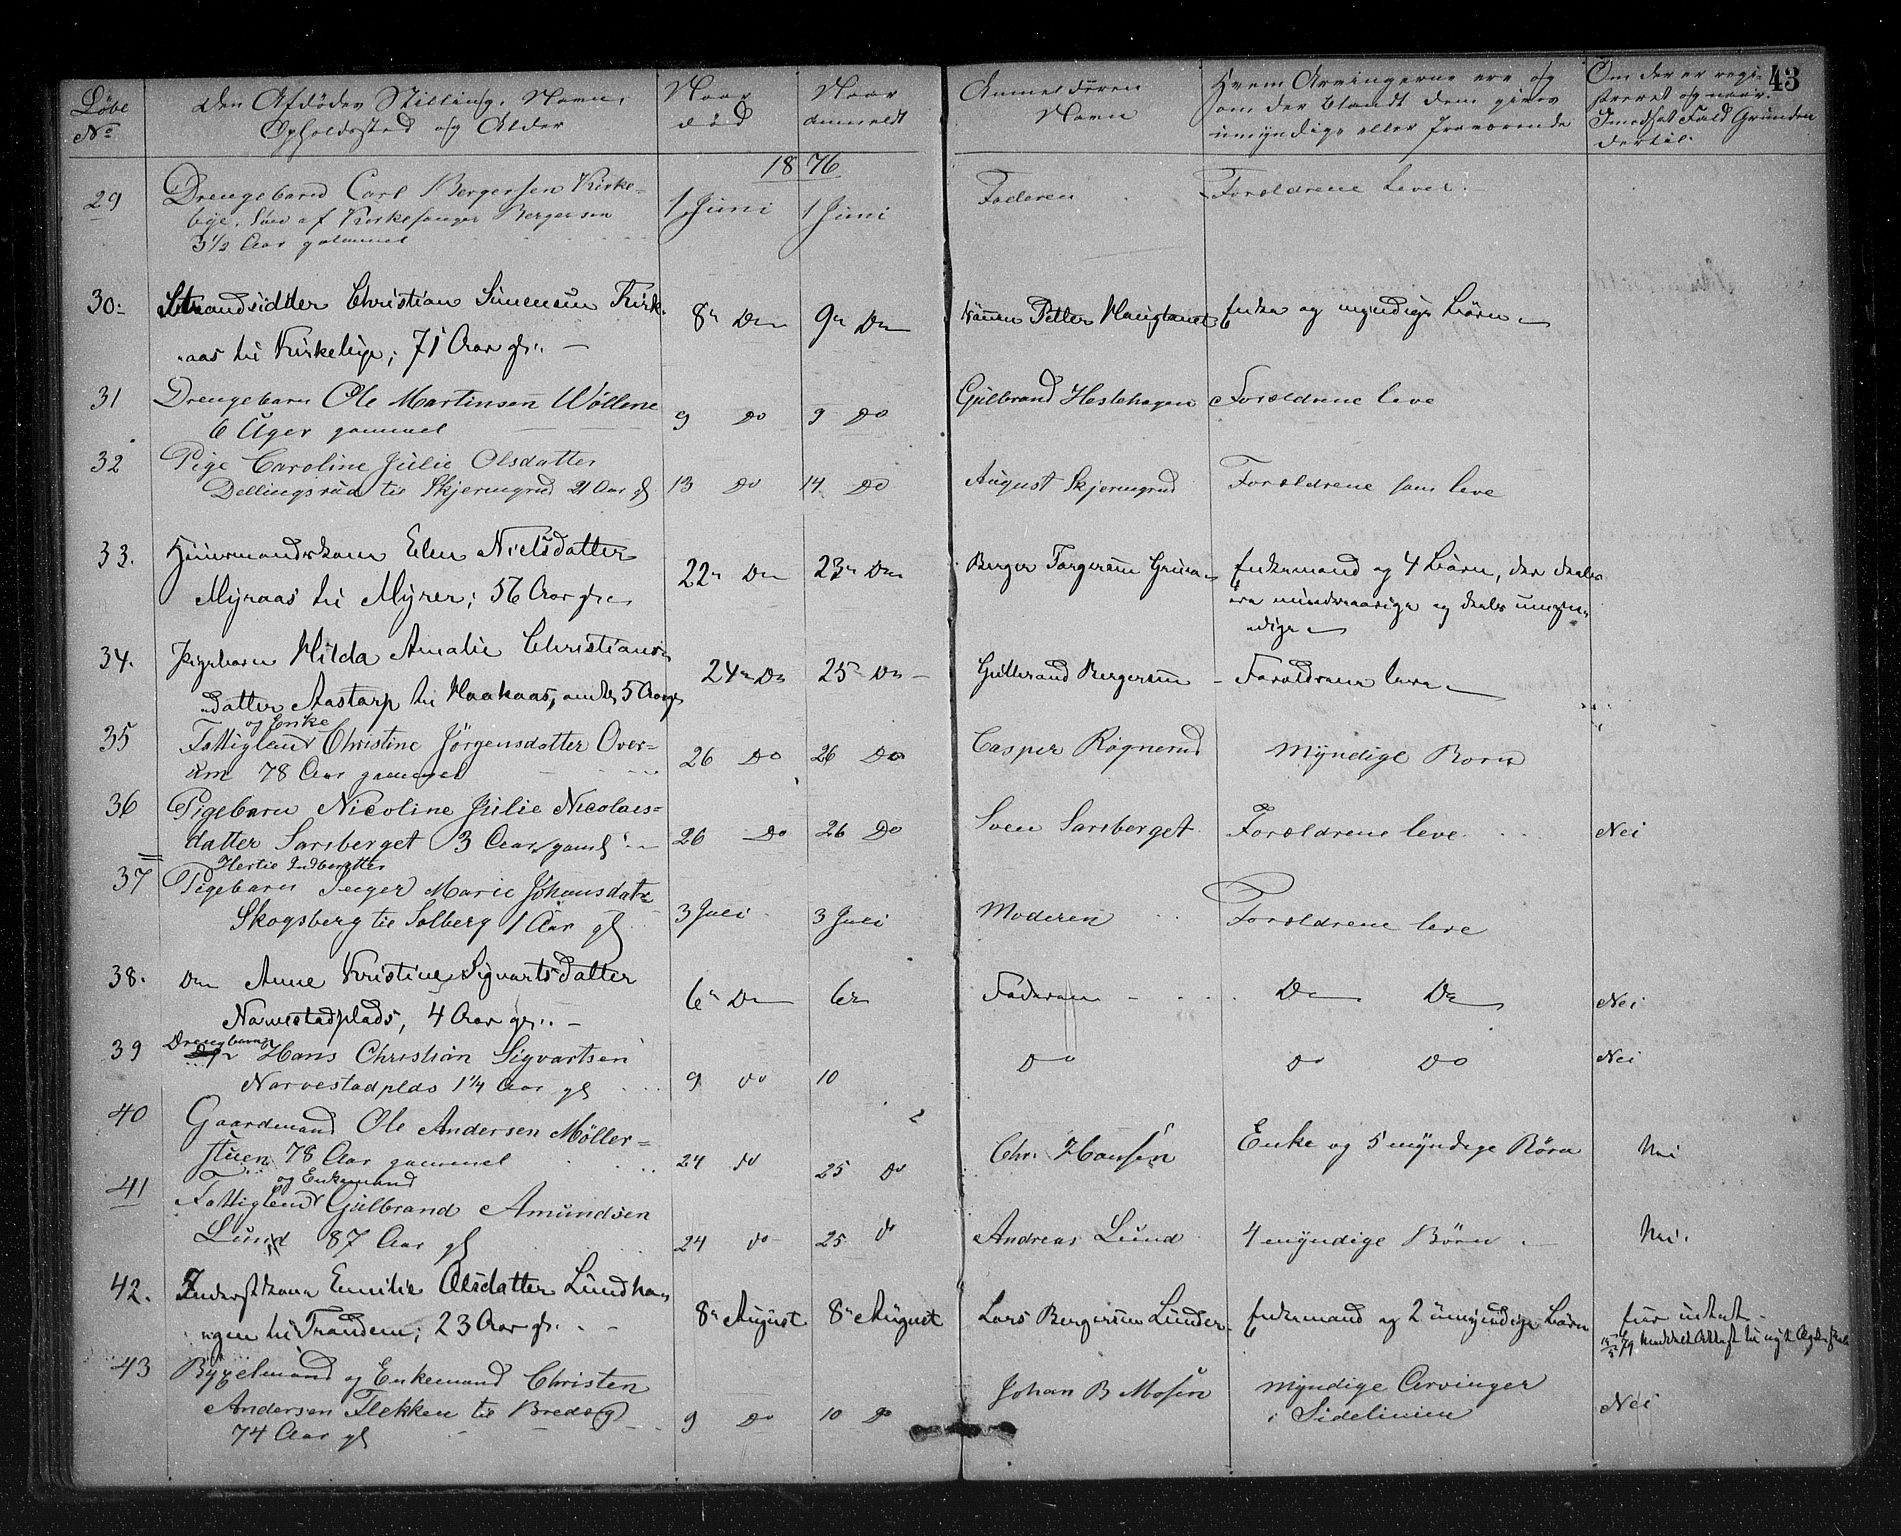 43
Løbe No
Den Afdødes Stilling, Navn, Opholdssted og Alder
Naar død
Naar anmeldt
Anmelderens Navn
Hvem Arvingerne ere og om der blandt dem gives umyndige eller fraværende
Om der er regi-
streret og naar.
I modsat Fald Grunden
dertil.
1876
29 Drengebarn Carl Bergersen Kirke-
bye, Søn af Kirkesanger Bergersen
3½ Aar gammel
1 Juni 1 Juni Faderen Forældrene lever.
30. Strandsidder Christian Simensen Kirk-
aas til Kirkebye; 71 Aar gl.
8 Do 9 Do Petter Haugland Enke og myndige Børn
31 Drengebarn Ole Martinsen Wøllene
6 Uger gammel
9 Do 9 Do Gulbrand Hestehagen Forældrene leve
32 Pige Caroline Julie Olsdatter
Dellingsrud til Skjerngrud 21 Aar gl
13 Do 14 Do August Skjerngrud Forældrene som leve
33. Huusmandskone Elen Nielsdatter
Myraas til Myrer; 56 Aar gl.
22 Do 23 Do Berger Torgersen Enkemand og 4 Børn, der deels
ere mindreaarige og deels umyn-
dige
34. Pigebarn Hilda Amalie Christians-
datter Aastorp til Haakaas, 5 Aar gl
24 Do 25 Do Gulbrand Bergersen Forældrene leve
35 Fattiglem og Enke Christine Jørgensdatter Over-
78 Aar gammel
26 Do 26 Do Casper Rognerud Myndige Børn
36 Pigebarn Nicoline Julie Nicolais-
datter Sarsberget 3 Aar gaml
26 Do 26 Do Sven Sarsberget Forældrene leve Nei
37 Pigebarn Inger Marie Johansdatr
Skogsberg til Solberg 1 Aar gl
3 Juli 3 Juli Moderen Forældrene leve
38. Do Anne Kristine Sigvartsdatter
Narvestadplads, 4 Aar gl.
6 Do 6 Faderen Do Do Nei
39 Drengebarn Hans Christian Sigvartsen
Narvestadplds 1¼ Aar gl
9 do 10 Do do do Nei
40 Gaardmand Ole Andersen Møller-
stuen 78 Aar gammel
24 do 25 do Chr. Hansen Enke og 5 myndige Børn Nei
41 Fattiglem og Enkemand Gulbrand Amundsen
Lund 87 Aar gl
24 do 25 do Andreas Lund 4 myndige Børn Nei.
42. Inderstkone Emilie Olsdatter Lundha-
gen til Trandem; 23 Aar gl.
8 August 8 August Lars Bergersen Lunder Enkemand og 2 umyndige Børn
43 Bygselmand og Enkemand Christen
Andersen Flekken til Bredog
74 Aar gl
9 Do 10 Do Johan B Mosen Myndige Arvinger
i Sidelinien Nei